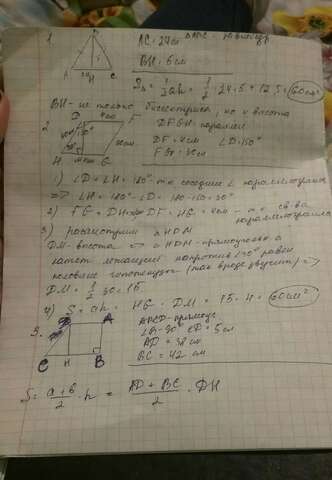 1.
B
A H C
AC = 24см
BH = 5см
S = 1/2 ah = 1/2 · 24 · 5 = 12·5 = 60см²
BH - не только биссектриса, но и высота
2.
D 4см F
30см
H M G
DFGH - паралл
DF = 4см ∠D = 150°
FG = 30см
1) ∠D + ∠H = 180° - т.к соседние ∠ параллелограмма
=> ∠H = 180° - ∠D = 180 - 150 = 30°
2) FG = DH; DF = HG = 4см - т.к св-ва
параллелограмма
3) рассмотрим △HDM
DM - высота => △HDM - прямоуг, а
катет лежащий напротив ∠30° равен
половине гипотенузы (так вроде звучит) =>
DM = 1/2 · 30 = 15
4) S = ah = HG · DM = 15 · 4 = 60см²
3.
D A
C H B
ABCD - прямоуг
∠B = 90° CD = 5см
AD = 38см
BC = 42 см
S = a+b/2 · h = AD + BC/2 · DH